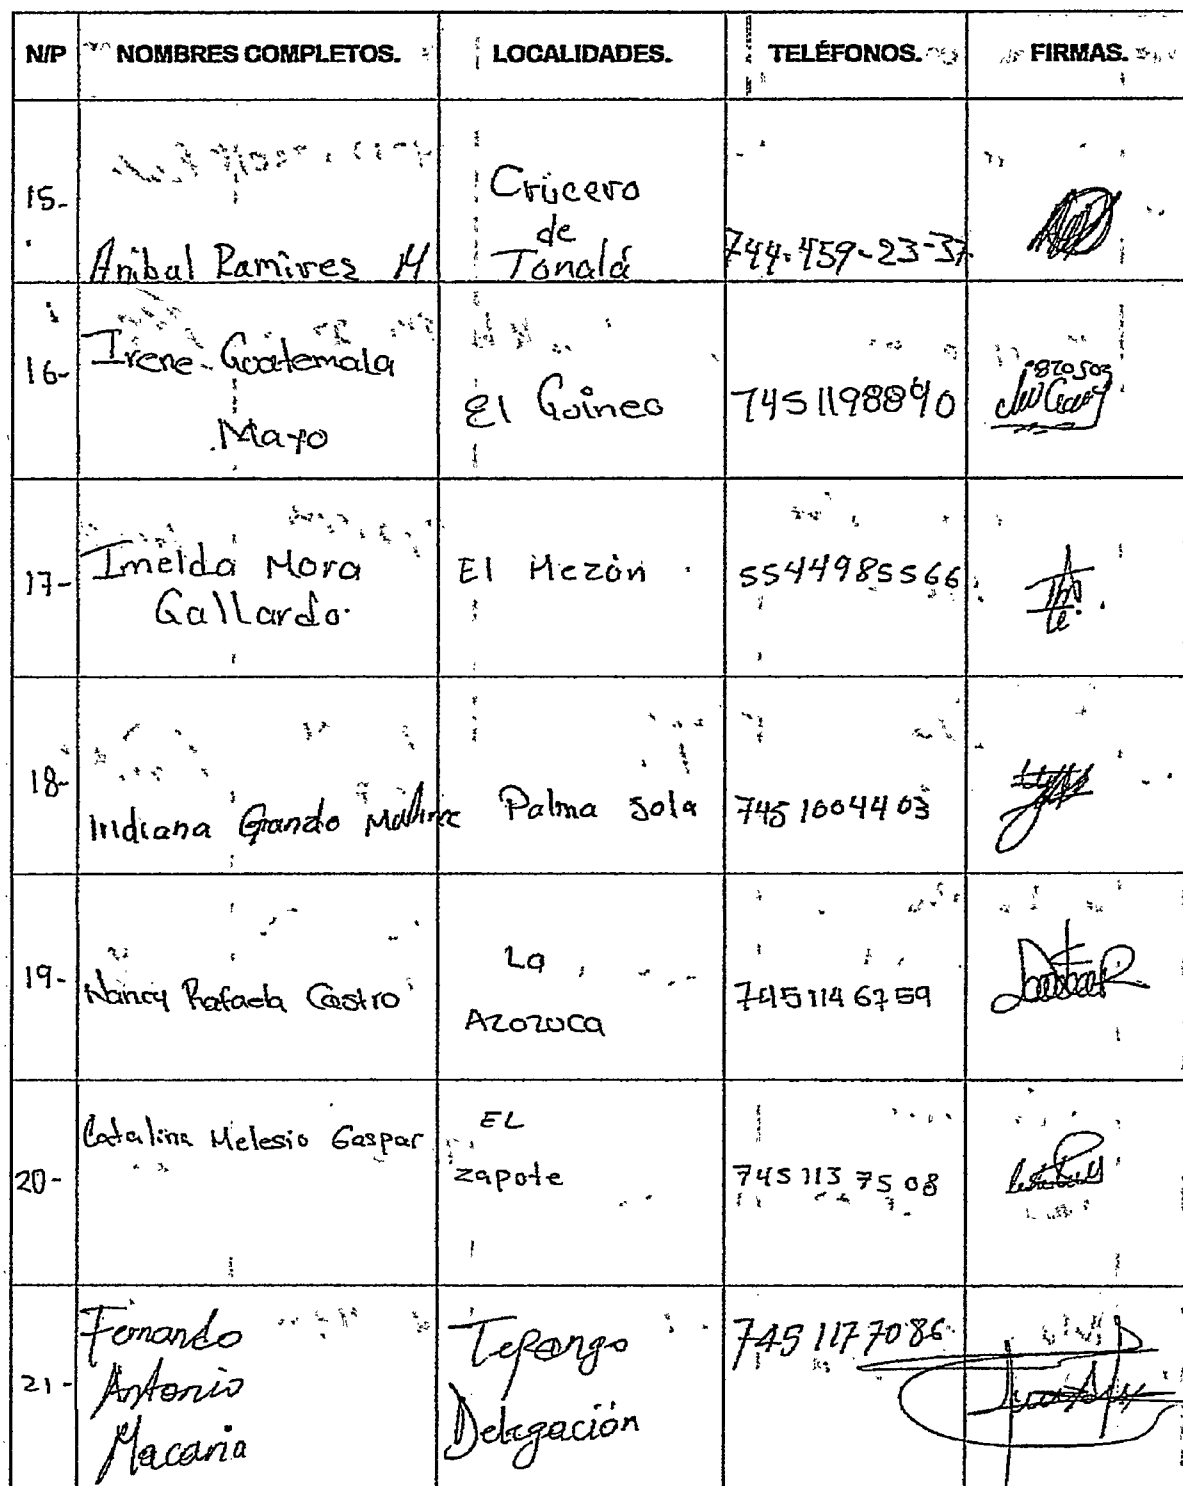 N/P NOMBRES COMPLETOS. LOCALIDADES. TELÉFONOS. FIRMAS.
15- Anibal Ramirez M Crucero de Tonalá 744-459-23-37
16- Irene Guatemala Mayo El Guineo 7451198890 870503
17- Imelda Mora Gallardo. El Mezón 5544985566
18- Indiana Grande Palma sola 7451004403
19- Nancy Rafaela Castro La Azozuca 7451146759
20- Catalina Melesio Gaspar EL zapote 745 113 75 08
21- Fernando Antonio Macario Tepango Delegación 745 117 7086